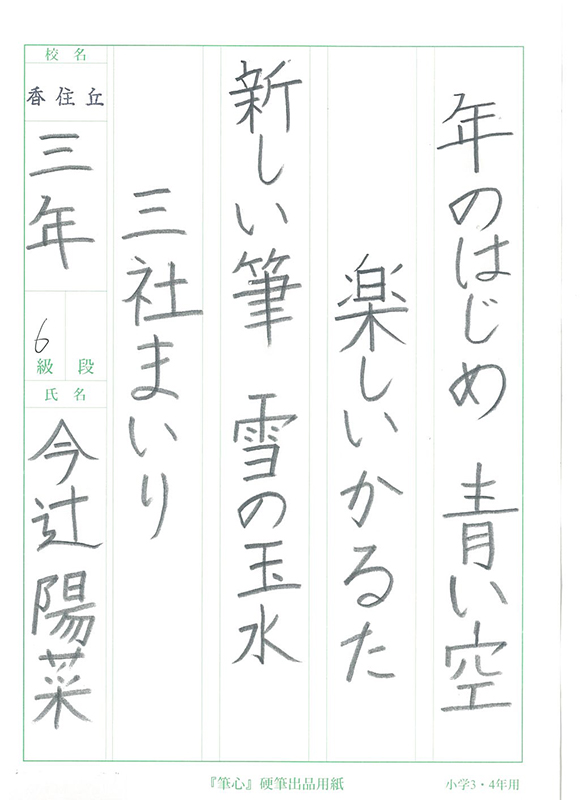 年のはじめ 青い空
楽しいかるた
新しい筆 雪の玉水
三社まいり
校名
香住丘
三年
6
級 段
氏名
今辻 陽菜
『筆心』硬筆出品用紙
小学3・4年用